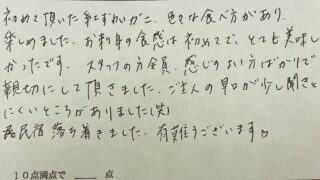 初めて頂いた紅ずわいがに、色々な食べ方があり、
楽しめました。お刺身の食感は初めてで、とても美味し
かったです。スタッフの方全員、感じのよい方ばかりで
親切にして頂きました。ご主人の早口が少し聞きと
りにくいところがありました(笑)
古民宿落ち着きました。有難うございます♡
10点満点で　　　点